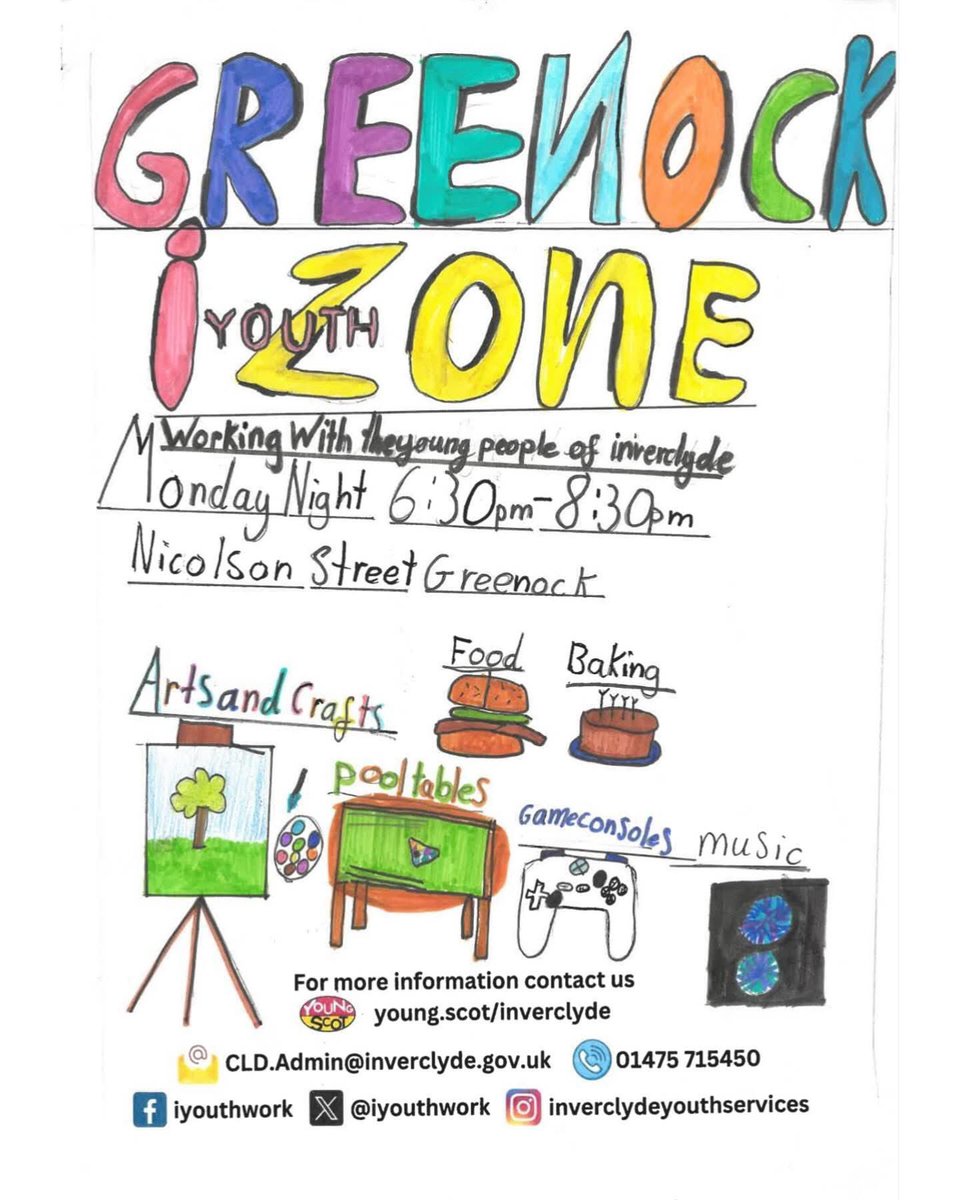 GREENOCK
i YOUTH ZONE
Working With the young people of inverclyde
Monday Night 6:30pm-8:30pm
Nicolson Street Greenock
Food Baking
Arts and Crafts
Pool tables
Gameconsoles music
For more information contact us
YOUNG SCOT young.scot/inverclyde
@ CLD.Admin@inverclyde.gov.uk 01475 715450
f iyouthwork X @iyouthwork inverclydeyouthservices